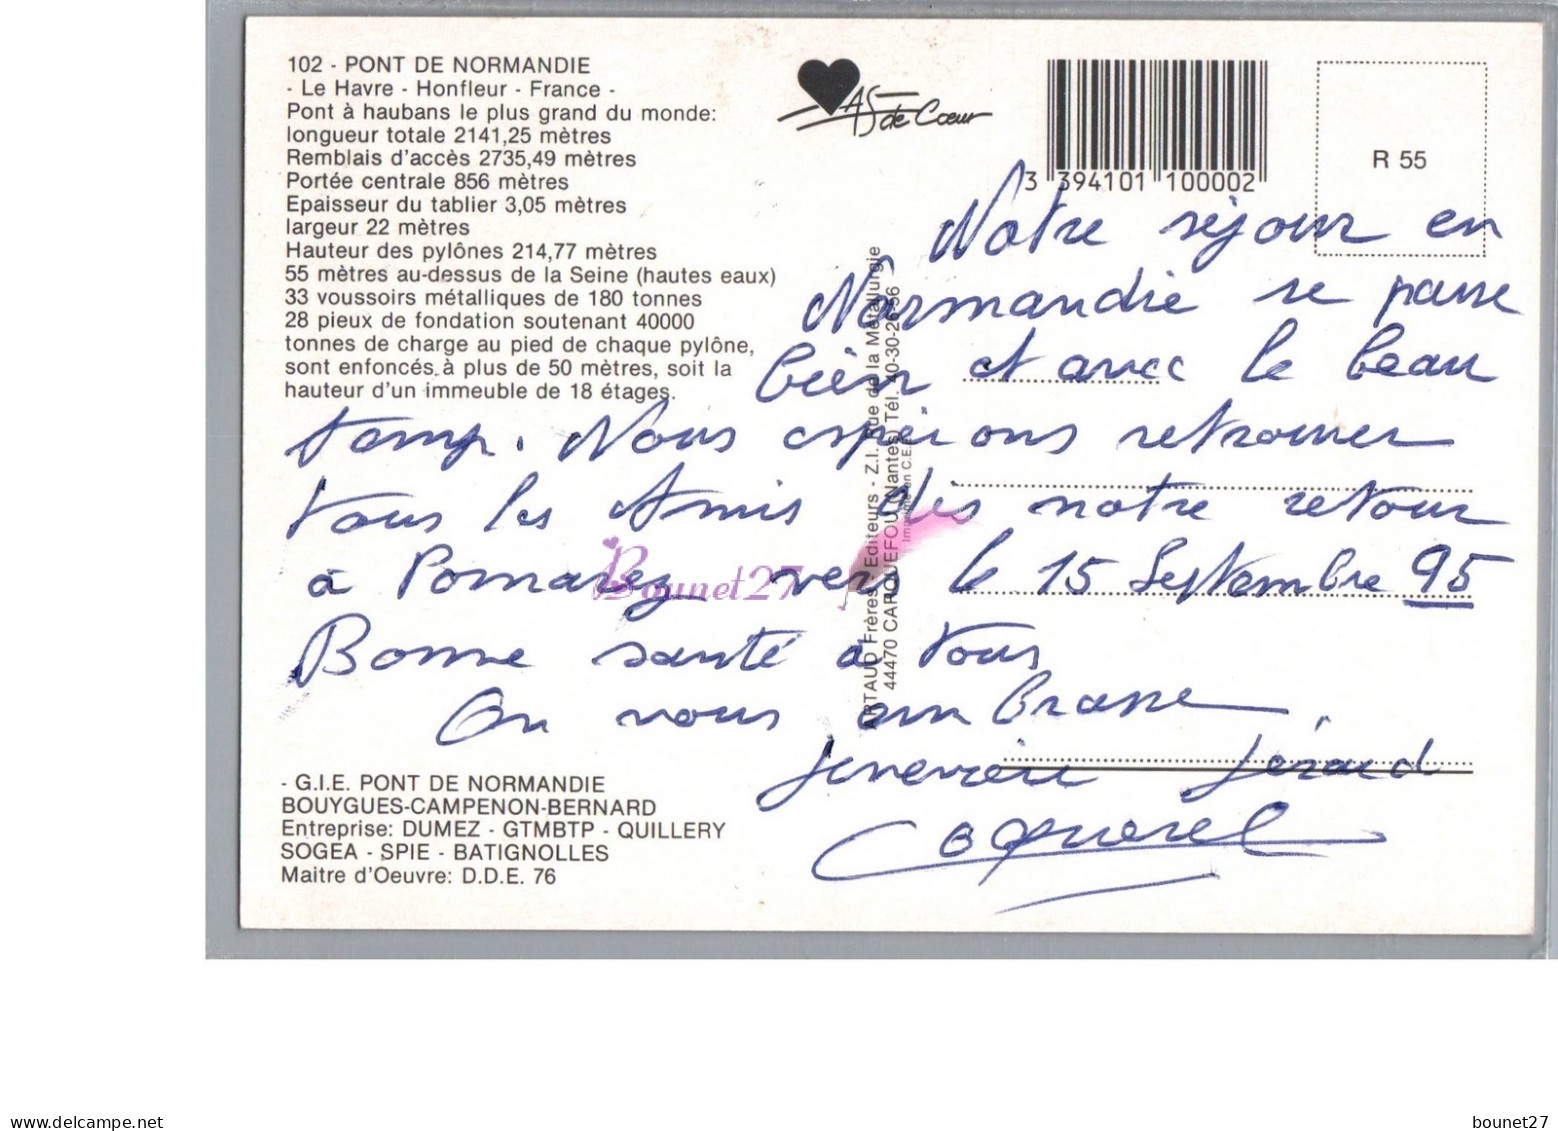 102 - PONT DE NORMANDIE
- Le Havre - Honfleur - France -
Pont à haubans le plus grand du monde:
longueur totale 2141,25 mètres
Remblais d'accès 2735,49 mètres
Portée centrale 856 mètres
Epaisseur du tablier 3,05 mètres
largeur 22 mètres
Hauteur des pylônes 214,77 mètres
55 mètres au-dessus de la Seine (hautes eaux)
33 voussoirs métalliques de 180 tonnes
28 pieux de fondation soutenant 40000
tonnes de charge au pied de chaque pylône,
sont enfoncés à plus de 50 mètres, soit la
hauteur d'un immeuble de 18 étages.
AS de Cœur
3 394101 100002
R 55
Notre séjour en
Normandie se passe
bien et avec le beau
temp. Nous espérions retrouver
tous les Amis dès notre retour
à Pomarez vers le 15 Septembre 95
Bonne santé à tous
On vous embrasse
Geneviève Gérard
Coquerel
ARTAUD Frères - Editeurs - Z.I. Rue de la Métallurgie
44470 CARQUEFOU (Nantes) Tél. 40-30-26-56
Imprimé en C.E.E.
Bounet27
- G.I.E. PONT DE NORMANDIE
BOUYGUES-CAMPENON-BERNARD
Entreprise: DUMEZ - GTMBTP - QUILLERY
SOGEA - SPIE - BATIGNOLLES
Maitre d'Oeuvre: D.D.E. 76
www.delcampe.net
bounet27